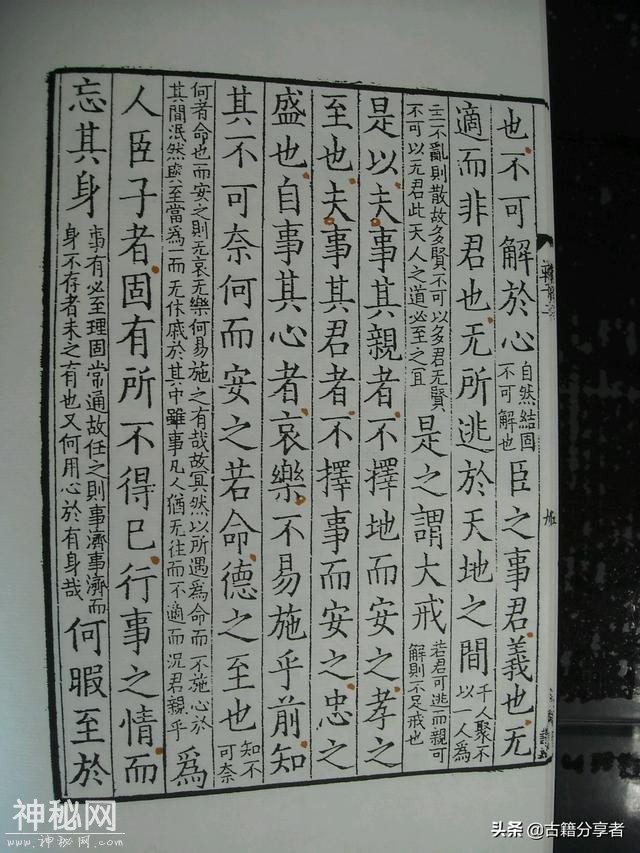 也不可解於心
自然結固
不可解也
臣之事君義也无
適而非君也无所逃於天地之間
千人聚不
以一人為
主不亂則散故多賢不可以多君无賢
不可以无君此天人之道必至之宜
是之謂大戒
若君可逃而親可
解則不足戒也
是以夫事其親者不擇地而安之孝之
至也夫事其君者不擇事而安之忠之
盛也自事其心者哀樂不易施乎前知
其不可奈何而安之若命德之至也
知不
可奈
何者命也而安之則无哀无樂何易施之有哉故冥然以所遇為命而不施心於
其間泯然與至當為一而无休戚於其中雖事凡人猶无往而不適而況君親乎
為
人臣子者固有所不得已行事之情而
忘其身
事有必至理固常通故任之則事濟事濟而
身不存者未之有也又何用心於有身哉
何暇至於
神秘网
www.神秘网.com
头条 @古籍分享者